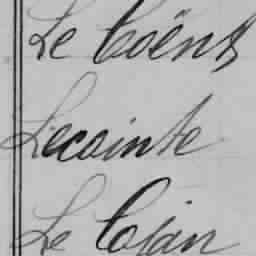 Le Coënt
Lecointe
Le Cojan